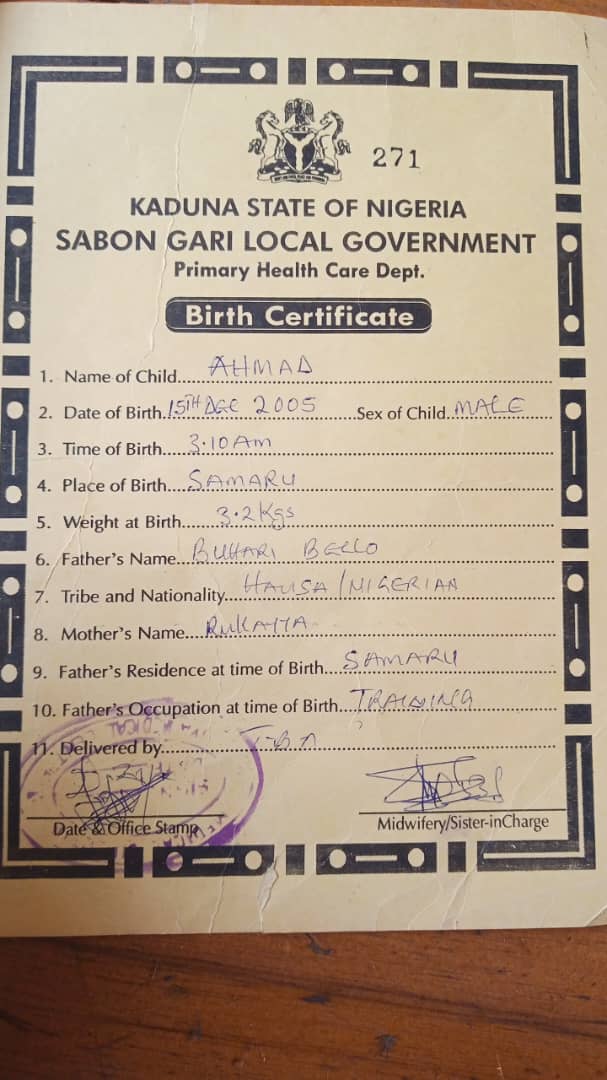 271
KADUNA STATE OF NIGERIA
SABON GARI LOCAL GOVERNMENT
Primary Health Care Dept.
Birth Certificate
1. Name of Child...AHMAD
2. Date of Birth...15TH DEC 2005...Sex of Child...MALE
3. Time of Birth...3.10 Am
4. Place of Birth...SAMARU
5. Weight at Birth...3.2 Kgs
6. Father's Name...BUHARI BELLO
7. Tribe and Nationality...HAUSA / NIGERIAN
8. Mother's Name...RUKAYYA
9. Father's Residence at time of Birth...SAMARU
10. Father's Occupation at time of Birth...TRAINING
11. Delivered by...TBA
Date & Office Stamp Midwifery/Sister-inCharge